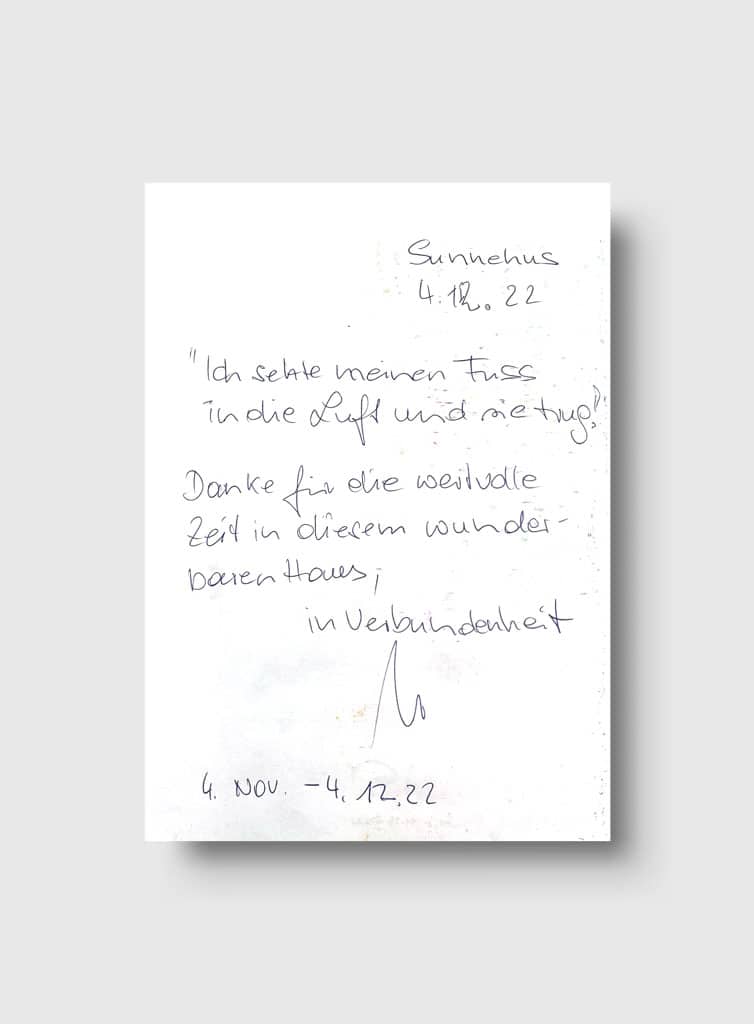 Sunnehus
4.12.22
"Ich setzte meinen Fuss
in die Luft und sie trug!"
Danke für die wertvolle
Zeit in diesem wunder-
baren Haus,
in Verbundenheit
4. Nov. – 4.12.22